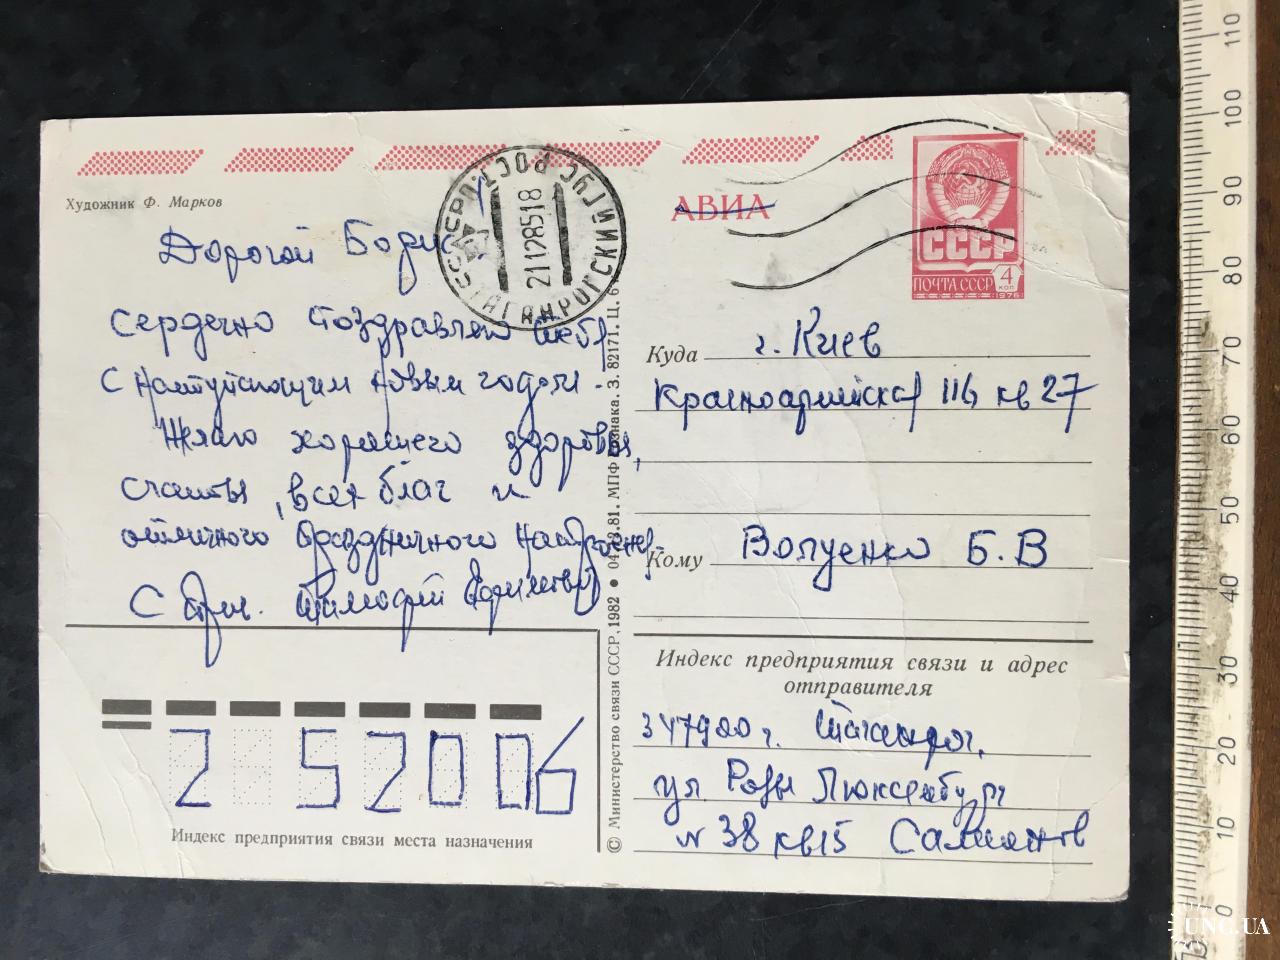 Художник Ф. Марков
АВИА
СССР
ПОЧТА СССР 4 коп
1976
СССР РОСТ. ТАГАНРОГСКИЙ
21128518
Дорогой Борис
Сердечно поздравляю тебя
с наступающим новым годом.
Желаю хорошего здоровья,
счастья, всех благ и
отличного праздничного
С Тимофей
Куда г. Киев
Красноармейская 116 кв 27
Кому Б. В
Индекс предприятия связи и адрес
отправителя
347900 г. Таганрог,
ул Розы Люксембург
N 38 кв 15
2 5 2 0 0 6
Индекс предприятия связи места назначения
© Министерство связи СССР, 1982 • 81. МПФ Гознака. З. 82171. Ц. 6
0 10 20 30 40 50 60 70 80 90 100 110
UNC.UA